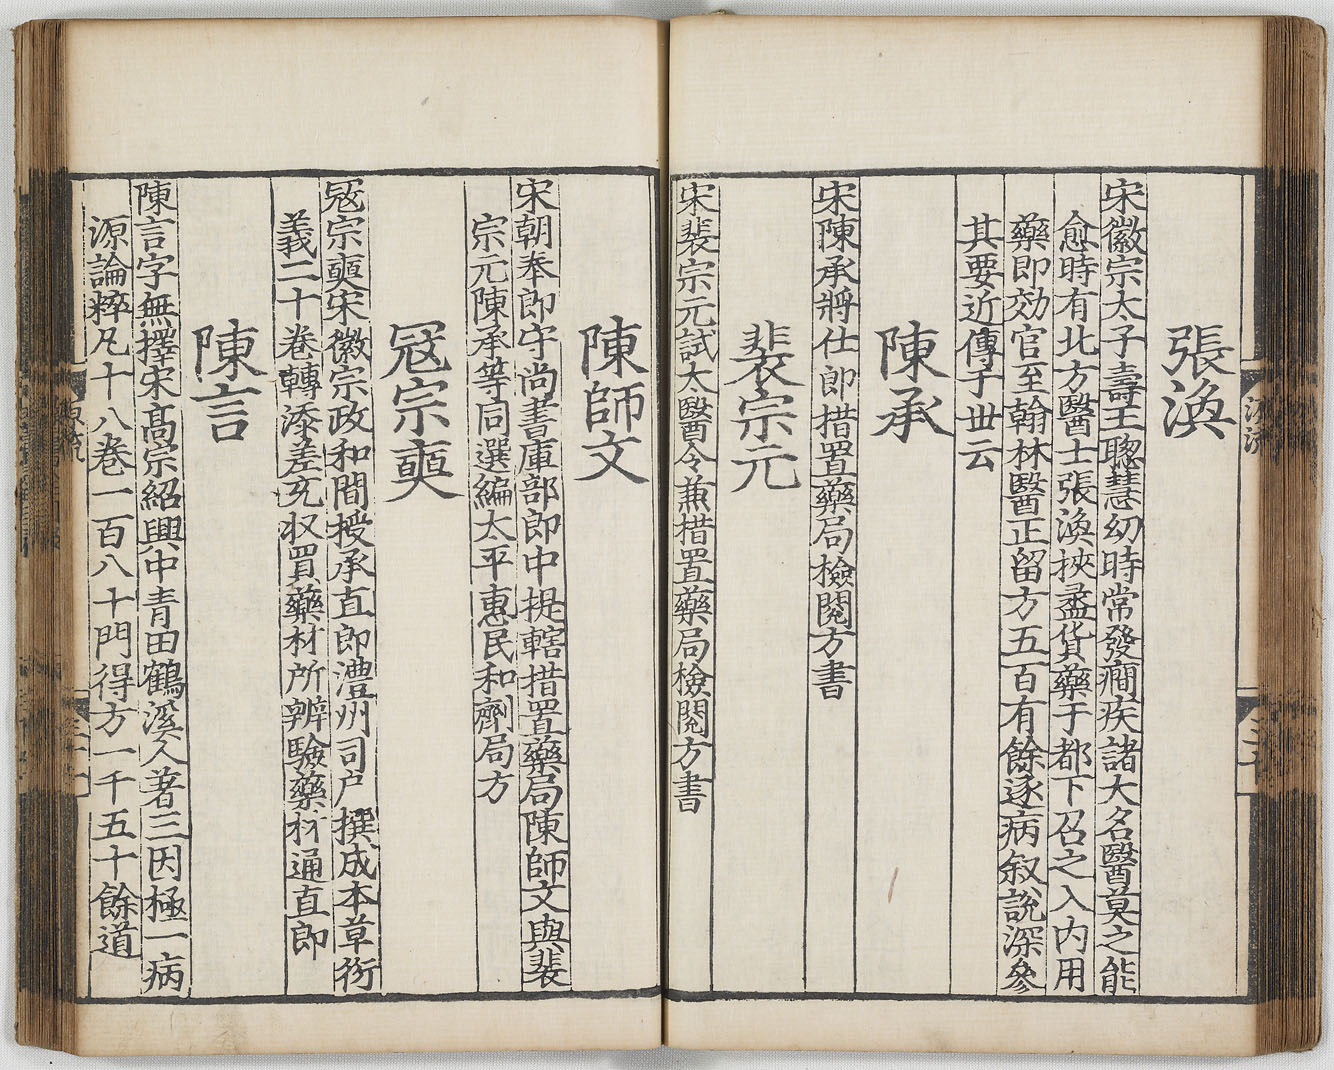 張渙
宋徽宗太子壽王聰慧幼時常發癎疾諸大名醫莫之能
愈時有北方醫士張渙挾盝貨藥于都下召之入內用
藥即効官至翰林醫正留方五百有餘逐病叙説深參
其要近傳于世云
陳承
宋陳承將仕郎措置藥局檢閱方書
裴宗元
宋裴宗元試太醫令兼措置藥局檢閱方書
陳師文
宋朝奉郎守尚書庫部郎中提轄措置藥局陳師文與裴
宗元陳承等同選編太平惠民和劑局方
冦宗奭
冦宗奭宋徽宗政和間授承直郎澧州司户撰成本草衍
義二十卷轉添差充収買藥材所辨驗藥材通直郎
陳言
陳言字無擇宋髙宗紹興中青田鶴溪人著三因極一病
源論粹凡十八卷一百八十門得方一千五十餘道